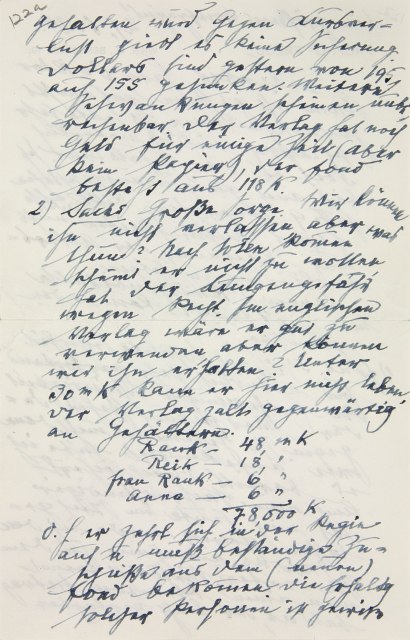 122a
gehalten wird. Gegen Kursver-
lust giebt es keine Sicherung.
Dollars sind gestern von 195
auf 155 gesunken. Weitere
Schwankungen scheinen unbe-
rechenbar. Der Verlag hat noch
Geld für einige Zeit (aber
kein Papier), der fond
besteht aus 118 K
2) Sachs große Sorge. Wir können
ihn nicht verlassen aber was
thun? Nach Wien kommen
scheint er nicht zu wollen
hat der Lungengefahr
wegen Recht. Im englischen
Verlag wäre er gut zu
verwenden aber können
wir ihn erhalten? Unter
30 mK kann er hier nicht leben
Der Verlag zalt gegenwärtig
an Gehältern.
Rank — 48, mK
Reik — 18, "
frau Rank — 6, "
Anna — 6 "
78,000 K
d. h. er zehrt sich in der Regie
auf u muß beständige Zu-
schüße aus dem (neuen)
fond bekommen. Die
solcher Personen ist gewiß